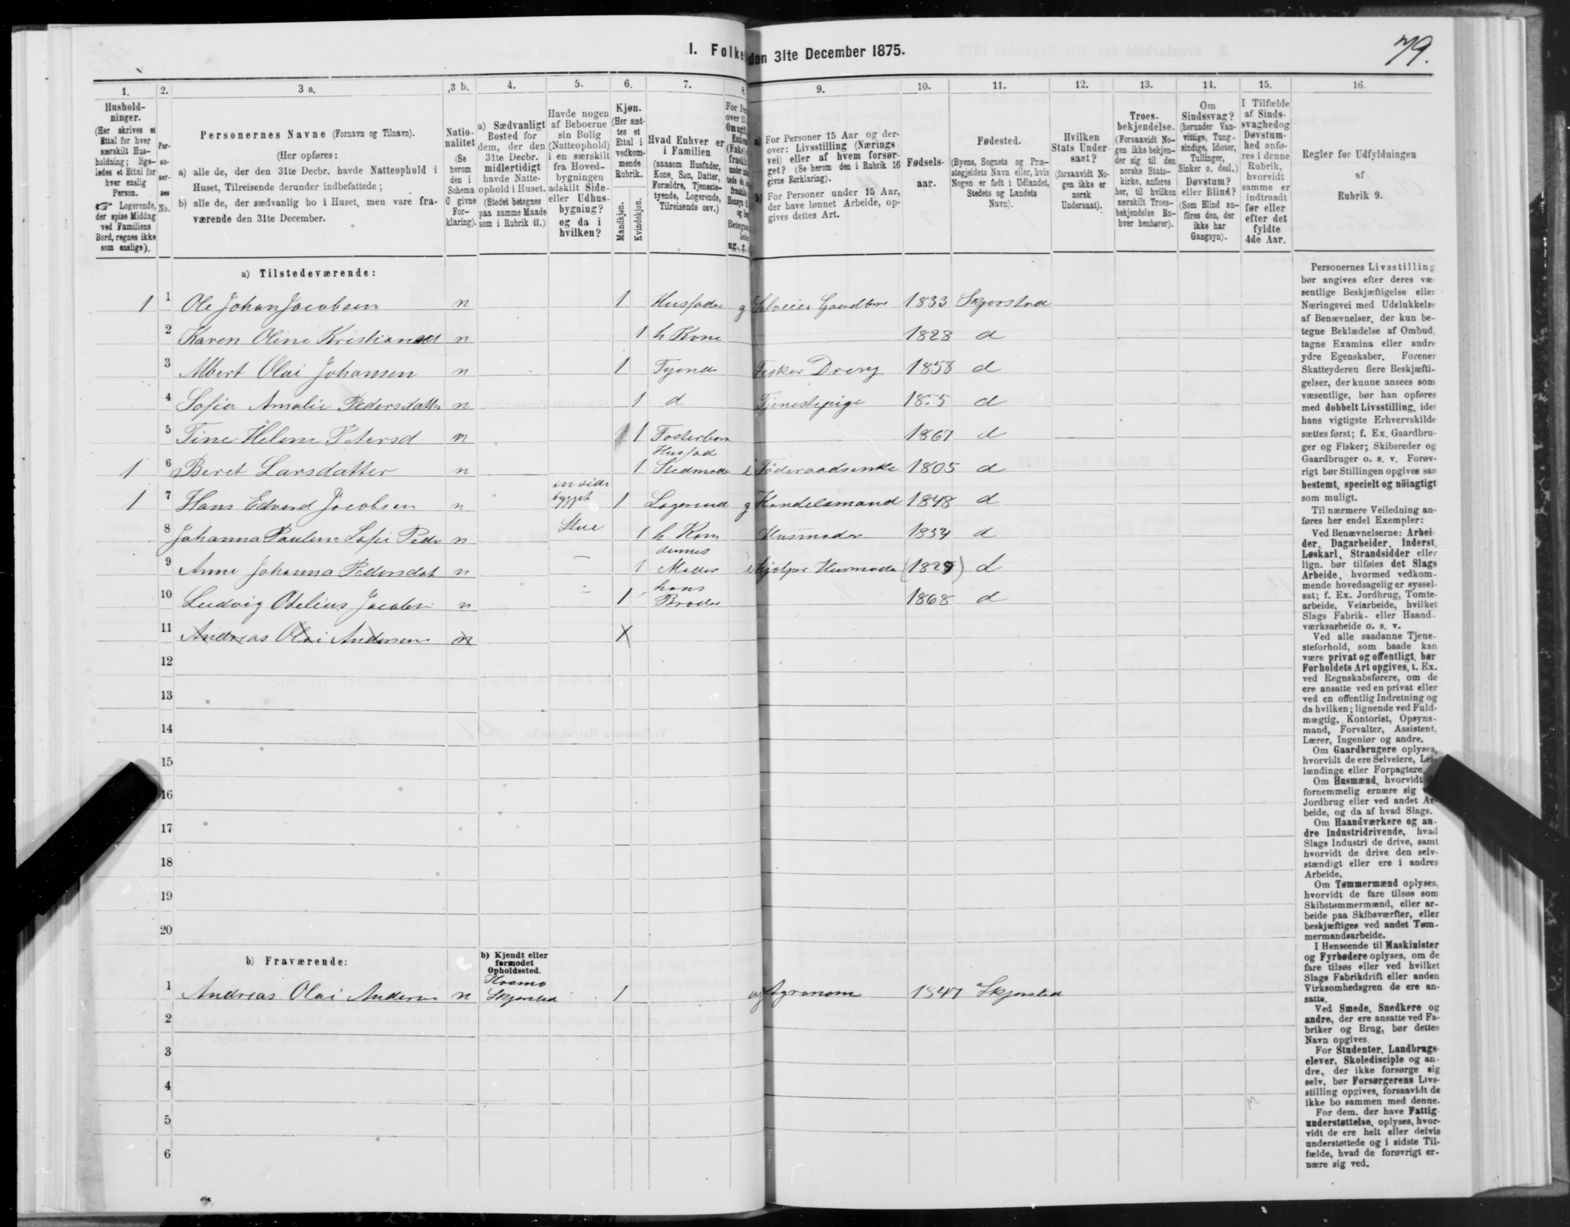 79.
I. Folke
den 31te December 1875.
1.
Hushold-
ninger.
(Her skrives et
Ettal for hver
særskilt Hus-
holdning; lige-
ledes et Ettal for
hver enslig
Person.
☞ Logerende,
der spise Middag
ved Familiens
Bord, regnes ikke
som enslige).
2.
Per-
so-
ner-
nes
No.
3 a.
Personernes Navne (Fornavn og Tilnavn).
(Her opføres:
a) alle de, der den 31te Decbr. havde Natteophold i
Huset, Tilreisende derunder indbefattede;
b) alle de, der sædvanlig bo i Huset, men vare fra-
værende den 31te December.
3 b.
Natio-
nalitet
(Se
herom
den i
Schema
C givne
For-
klaring).
4.
a) Sædvanligt
Bosted for
dem, der den
31te Decbr.
midlertidigt
havde Natte-
ophold i Huset.
(Stedet betegnes
paa samme Maade
som i Rubrik 11.)
5.
Havde nogen
af Beboerne
sin Bolig
(Natteophold)
i en særskilt
fra Hoved-
bygningen
adskilt Side-
eller Udhus-
bygning?
og da i
hvilken?
6.
Kjøn.
(Her sæt-
tes et
Ettal i
vedkom-
mende
Rubrik.
Mandkjøn.
Kvindekjøn.
7.
Hvad Enhver er
i Familien
(saasom Husfader,
Kone, Søn, Datter,
Forældre, Tjeneste-
tyende, Logerende,
Tilreisende osv.)
8.
9.
a) For Personer 15 Aar og der-
over: Livsstilling (Nærings-
vei) eller af hvem forsør-
get? (Se herom den i Rubrik 16
givne Forklaring).
b) For Personer under 15 Aar,
der have lønnet Arbeide, op-
gives dettes Art.
10.
Fødsels-
aar.
11.
Fødested.
(Byens, Sognets og Præ-
stegjeldets Navn eller, hvis
Nogen er født i Udlandet,
Stedets og Landets
Navn).
12.
Hvilken
Stats Under-
saat?
(forsaavidt No-
gen ikke er
norsk
Undersaat).
13.
Troes-
bekjendelse.
(Forsaavidt No-
gen ikke bekjen-
der sig til den
norske Stats-
kirke, anføres
her, til hvilken
særskilt Troes-
bekjendelse En-
hver henhører).
14.
Om
Sindssvag?
(herunder Van-
vittige, Tung-
sindige, Idioter,
Tullinger,
Sinker o. desl.)
Døvstum?
eller Blind?
(Som Blind an-
føres den, der
ikke har
Gangsyn).
15.
I Tilfælde
af Sinds-
svaghed og
Døvstum-
hed anfø-
res i denne
Rubrik,
hvorvidt
samme er
indtraadt
før eller
efter det
fyldte
4de Aar.
16.
Regler for Udfyldningen
af
Rubrik 9.
a) Tilstedeværende:
1 1 Ole Johan Jacobsen n 1 Husfader g Selveier Gaardbru 1833 Skjerstad
2 Karen Oline Kristiansdt n 1 h Kone 1828 d
3 Albert Olai Johansen n 1 Tyende Fisker Dreng 1858 d
4 Sofia Amalie Pedersdatte n 1 d Tjenestepige 1855 d
5 Tine Helene Petersd n 1 Fosterbarn 1861 d
Husfad
1 6 Beret Larsdatter n 1 Stedmode e Føderaadsenke 1805 d
en side
bygget
1 7 Hans Edvard Jacobsen n 1 Logerend g Handelsmand 1848 d
Stue
8 Johanna Pauline Sofie Peds n 1 h Kone Husmoder 1854 d
dennes
9 Anne Johanna Pedersdat n 1 Moder e Hjelper Husmoder (1829) d
hans
10 Ludvig Odelius Jacobse n 1 Broder 1868 d
11 Andreas Olai Andersen n
12
13
14
15
16
17
18
19
20
b) Fraværende:
b) Kjendt eller
formodet
Opholdssted.
1 Andreas Olai Anderse n Skjerstad 1 ug Agronom 1847 Skjerstad
2
3
4
5
6
Personernes Livsstilling
bør angives efter deres væ-
sentlige Beskjæftigelse eller
Næringsvei med Udelukkelse
af Benævnelser, der kun be-
tegne Beklædelse af Ombud,
tagne Examina eller andre
ydre Egenskaber. Forener
Skatteyderen flere Beskjæfti-
gelser, der kunne ansees som
væsentlige, bør han opføres
med dobbelt Livsstilling, idet
hans vigtigste Erhvervskilde
sættes først; f. Ex. Gaardbru-
ger og Fisker; Skibsreder og
Gaardbruger o. s. v. Forøv-
rigt bør Stillingen opgives saa
bestemt, specielt og nöiagtigt
som muligt.
Til nærmere Veiledning an-
føres her endel Exempler:
Ved Benævnelserne: Arbei-
der, Dagarbeider, Inderst,
Løskarl, Strandsidder eller
lign. bør tilføies det Slags
Arbeide, hvormed vedkom-
mende hovedsagelig er syssel-
sat; f. Ex. Jordbrug, Tomte-
arbeide, Veiarbeide, hvilket
Slags Fabrik- eller Haand-
værksarbeide o. s. v.
Ved alle saadanne Tjene-
steforhold, som baade kan
være privat og offentligt, bør
Forholdets Art opgives, t. Ex.
ved Regnskabsførere, om de
ere ansatte ved en privat eller
ved en offentlig Indretning og
da hvilken; lignende ved Fuld-
mægtig, Kontorist, Opsyns-
mand, Forvalter, Assistent,
Lærer, Ingeniør og andre.
Om Gaardbrugere oplyses,
hvorvidt de ere Selveiere, Lei-
lændinge eller Forpagtere.
Om Husmænd, hvorvidt de
fornemmelig ernære sig ved
Jordbrug eller ved andet Ar-
beide, og da af hvad Slags.
Om Haandværkere og an-
dre Industridrivende, hvad
Slags Industri de drive, samt
hvorvidt de drive den selv-
stændigt eller ere i andres
Arbeide.
Om Tømmermænd oplyses,
hvorvidt de fare tilsøs som
Skibstømmermænd, eller ar-
beide paa Skibsværfter, eller
beskjæftiges ved andet Tøm-
mermandsarbeide.
I Henseende til Maskinister
og Fyrbødere oplyses, om de
fare tilsøs eller ved hvilket
Slags Fabrikdrift eller anden
Virksomhedsgren de ere an-
satte.
Ved Smede, Snedkere og
andre, der ere ansatte ved Fa-
briker og Brug, bør dettes
Navn opgives.
For Studenter, Landbrugs-
elever, Skoledisciple og an-
dre, der ikke forsørge sig
selv, bør Forsørgerens Livs-
stilling opgives, forsaavidt de
ikke bo sammen med denne.
For dem, der have Fattig-
understøttelse, oplyses, hvor-
vidt de ere helt eller delvis
understøttede og i sidste Til-
fælde, hvad de forøvrigt er-
nære sig ved.